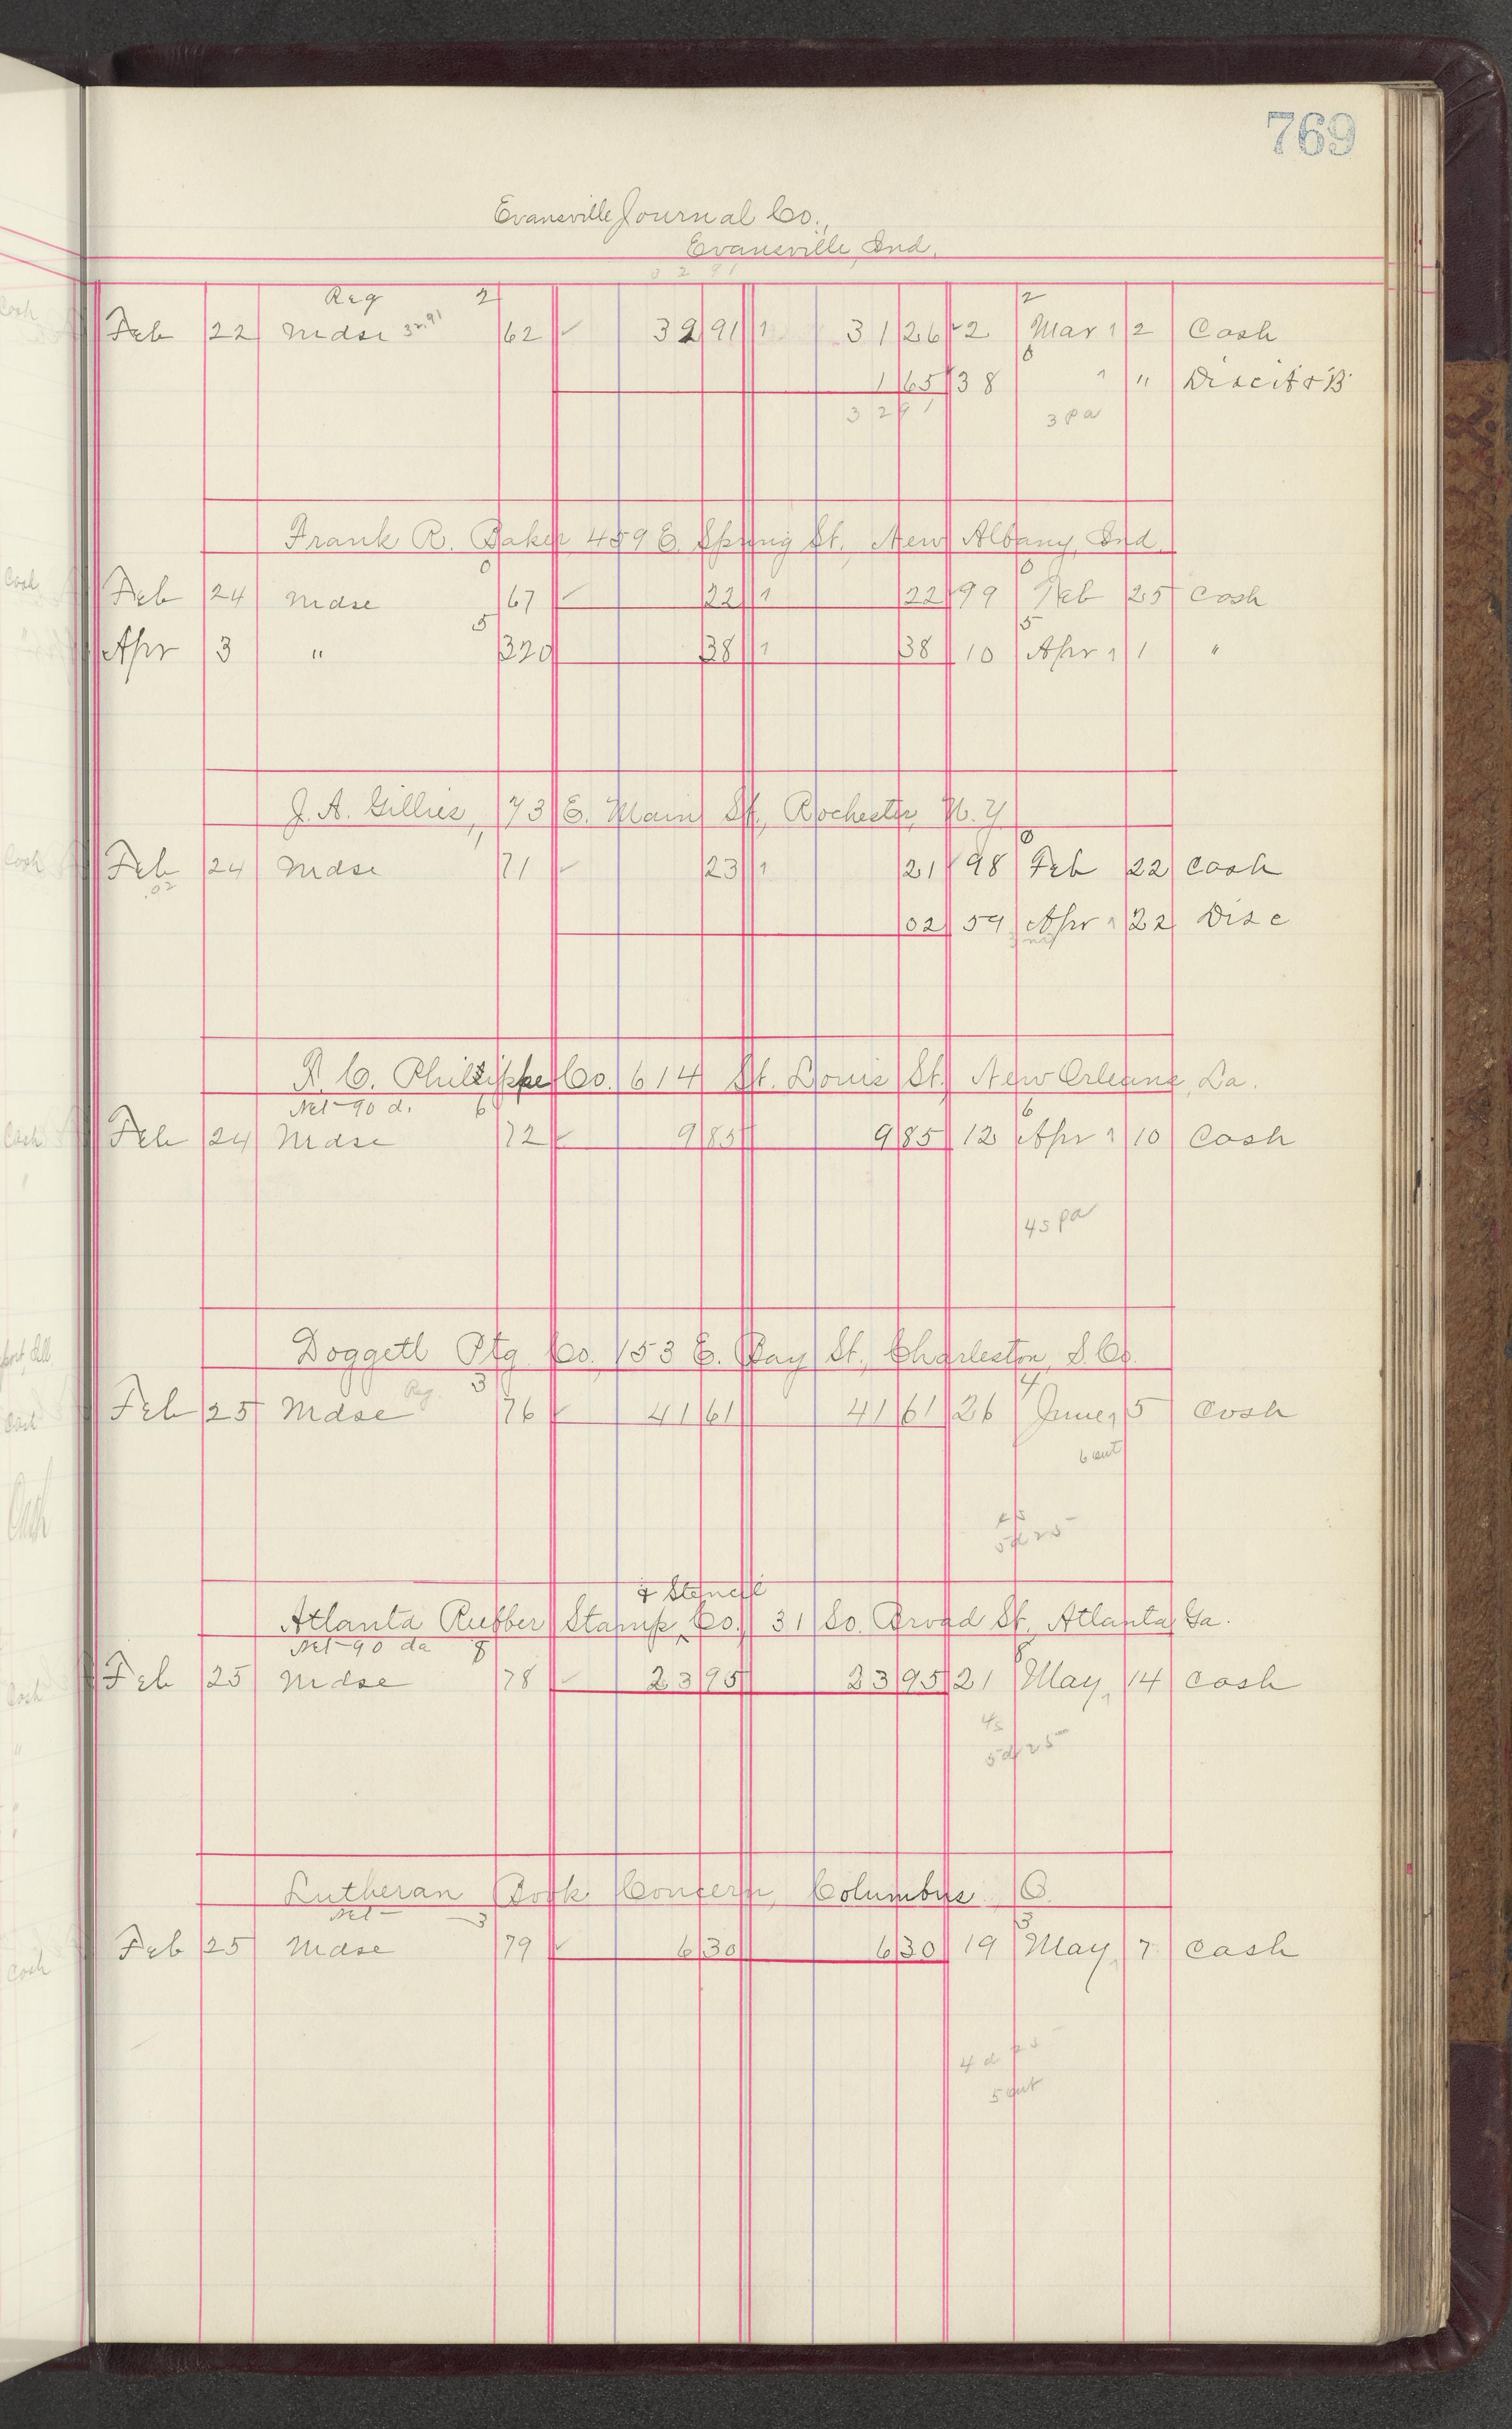 769
Evansville Journal Co.,
Evansville, Ind.
3 2 91
Reg 2 2
Feb 22 Mdse 32.91 62 ✓ 32 91 1 31 26 2 Mar 1 2 Cash
1 65 38 " " Disc
32 91 3 pd
Frank R. Baker 459 E. Spring St., New Albany, Ind.
0 0
Feb 24 Mdse 67 ✓ 22 1 22 99 Feb 25 Cash
5 5
Apr 3 " 320 38 1 38 10 Apr 1 1 "
J. A. Gillies, 73 E. Main St., Rochester, N. Y
Feb 24 Mdse 71 ✓ 23 1 21 98 Feb 22 Cash
.02
02 59 Apr 1 22 Disc
P. C. Philippe Co. 614 St. Louis St. New Orleans, La.
Net 90 d. 6 6
Feb 24 Mdse 72 ✓ 9 85 9 85 12 Apr 1 10 Cash
4s pd
Doggett Ptg. Co. 153 E. Bay St., Charleston, S. Co.
Reg. 3 4
Feb 25 Mdse 76 ✓ 41 61 41 61 26 June 1 5 Cash
6 out
4s
5d 25
& Stencil
Atlanta Rubber Stamp Co., 31 So. Broad St., Atlanta, Ga.
Net 90 da 8 8
Feb 25 Mdse 78 ✓ 23 95 23 95 21 May 1 14 Cash
4s
5d 25
Lutheran Book Concern, Columbus, O.
Net 3 3
Feb 25 Mdse 79 ✓ 6 30 6 30 19 May 1 7 Cash
4 d 25
5 out